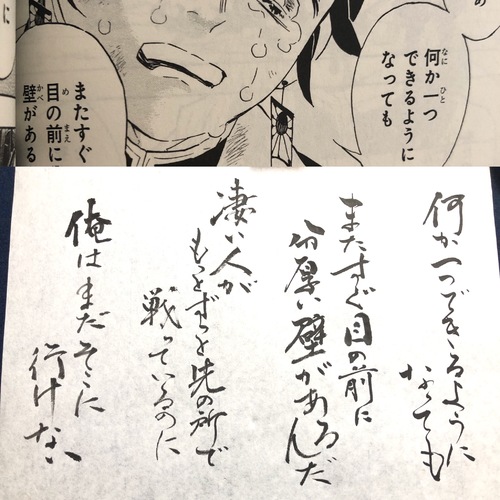 の
何か一つ
できるように
なっても
またすぐ
目の前に
壁がある
何か一つできるように
なっても
またすぐ目の前に
分厚い壁があるんだ
凄い人が
もっとずっと先の所で
戦っているのに
俺はまだそこに
行けない